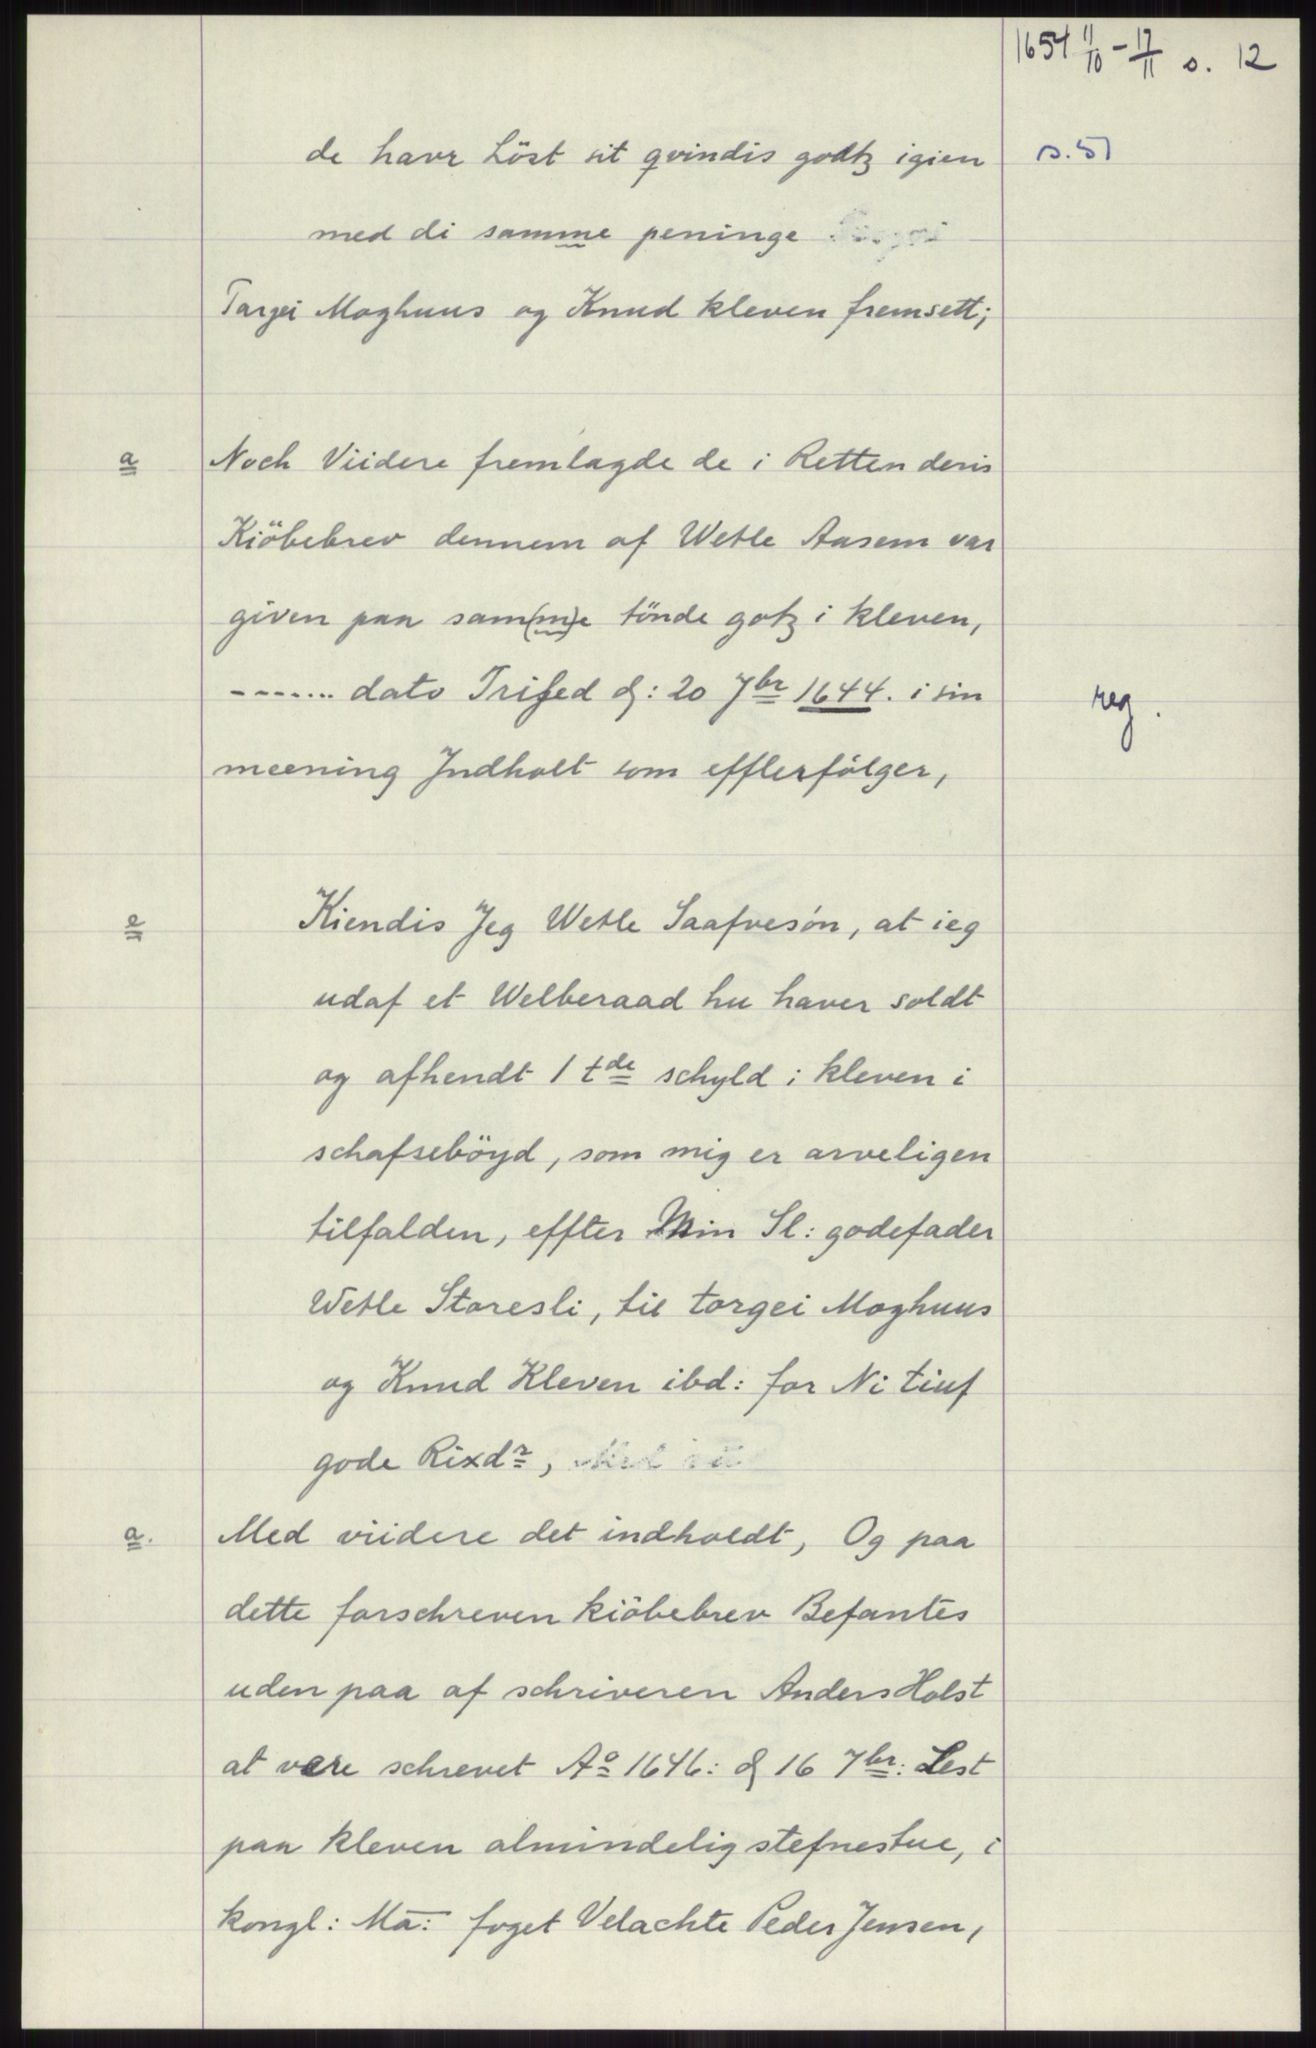 1654 11/10 - 17/11 s. 12
de havr Löst sit qvindis godtz igien s. 51
med di samme peninge
Targei Moghuus og Knud kleven fremsett;
a Noch Viidere fremlagde de i Retten deris
Kiöbebrev dennem af Wetle Aasem var
given paa sam(m)e tönde gotz i kleven,
------- dato Trised d: 20 7br 1644. i sin reg.
meening Jndholt som effterfölger,
e Kiendis Jeg Wetle Saafvesön, at ieg
udaf et Welberaad hu haver soldt
og afhendt 1 tde schyld i kleven i
schafseböyd, som mig er arveligen
tilfalden, effter Min Sl: godefader
Wetle Staresli, til torgei Moghuus
og Knud Kleven ibd: for Ni tiuf
gode Rixdr,
a. Med viidere det indholdt, Og paa
dette forschreven kiöbebrev Befantes
uden paa af schriveren Anders Holst
at vere schrevet Ao 1646: d 16 7br: Lest
paa kleven almindelig stefnestue, i
kongl: Ma: foget Velachte Peder Jensen,